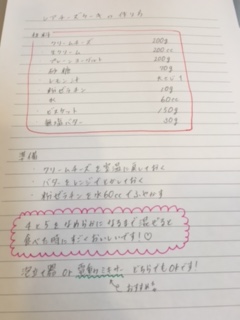 レアチーズケーキの作り方
材料
クリームチーズ 200g
生クリーム 200cc
プレーンヨーグルト 200g
砂糖 70g
レモン汁 大さじ1
粉ゼラチン 10g
水 60cc
ビスケット 150g
無塩バター 50g
準備
・クリームチーズを室温に戻しておく
・バターをレンジでとかしておく
・粉ゼラチンを水60ccでふやかす
4と5をなめらかになるまで混ぜると
食べた時にすごくおいしいです!♡
泡立て器 or 電動ミキサー どちらでもOKです!
おすすめ